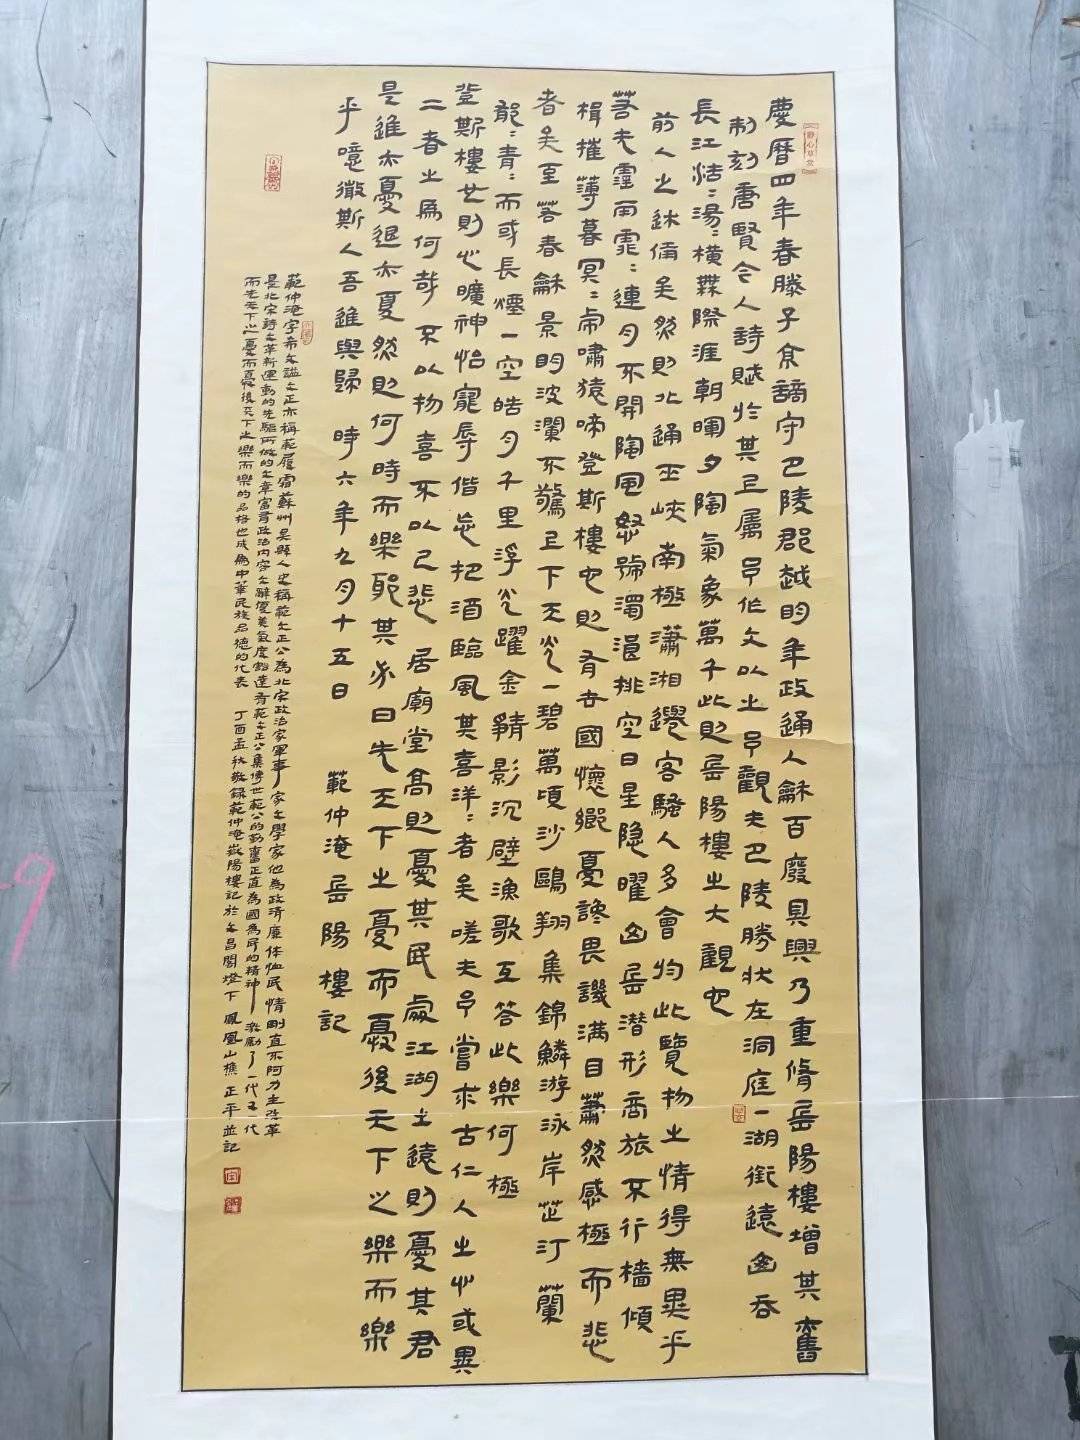 慶曆四年春滕子京謫守巴陵郡越明年政通人龢百廢具興乃重脩岳陽樓增其舊
制刻唐賢今人詩賦於其上屬予作文以之予觀夫巴陵勝狀在洞庭一湖銜遠山吞
長江浩=湯=橫無際涯朝暉夕陰氣象萬千此則岳陽樓之大觀也
前人之述備矣然則北通巫峽南極瀟湘遷客騷人多會於此覽物之情得無異乎
若夫霪雨霏=連月不開陰風怒號濁浪排空日星隱曜山岳潛形商旅不行檣傾
楫摧薄暮冥=虎嘯猿啼登斯樓也則有去國懷鄉憂讒畏譏滿目蕭然感極而悲
者矣至若春龢景明波瀾不驚上下天光一碧萬頃沙鷗翔集錦鱗游泳岸芷汀蘭
郁=青=而或長煙一空皓月千里浮光躍金靜影沉璧漁歌互答此樂何極
登斯樓也則心曠神怡寵辱偕忘把酒臨風其喜洋=者矣嗟夫予嘗求古仁人之心或異
二者之爲何哉不以物喜不以己悲居廟堂高則憂其民處江湖之遠則憂其君
是進亦憂退亦憂然則何時而樂耶其必曰先天下之憂而憂後天下之樂而樂
乎噫微斯人吾誰與歸 時六年九月十五日 範仲淹岳陽樓記
範仲淹字希文謚文正亦稱範履霜蘇州吳縣人史稱範文正公為北宋政治家軍事家文學家他為政清廉体恤民情剛直不阿力主改革
是北宋詩文革新運動的先驅所做的文章富有政治内容文辭優美氣度豁達有範文正公集傳世範公的勤奮正直為國為民的精神激勵了一代又一代
而先天下之憂而憂後天下之樂而樂的品格也成為中華民族品德的代表 丁酉孟秋敬錄範仲淹岳陽樓記於文昌閣燈下 鳳凰山樵 正平並記
9